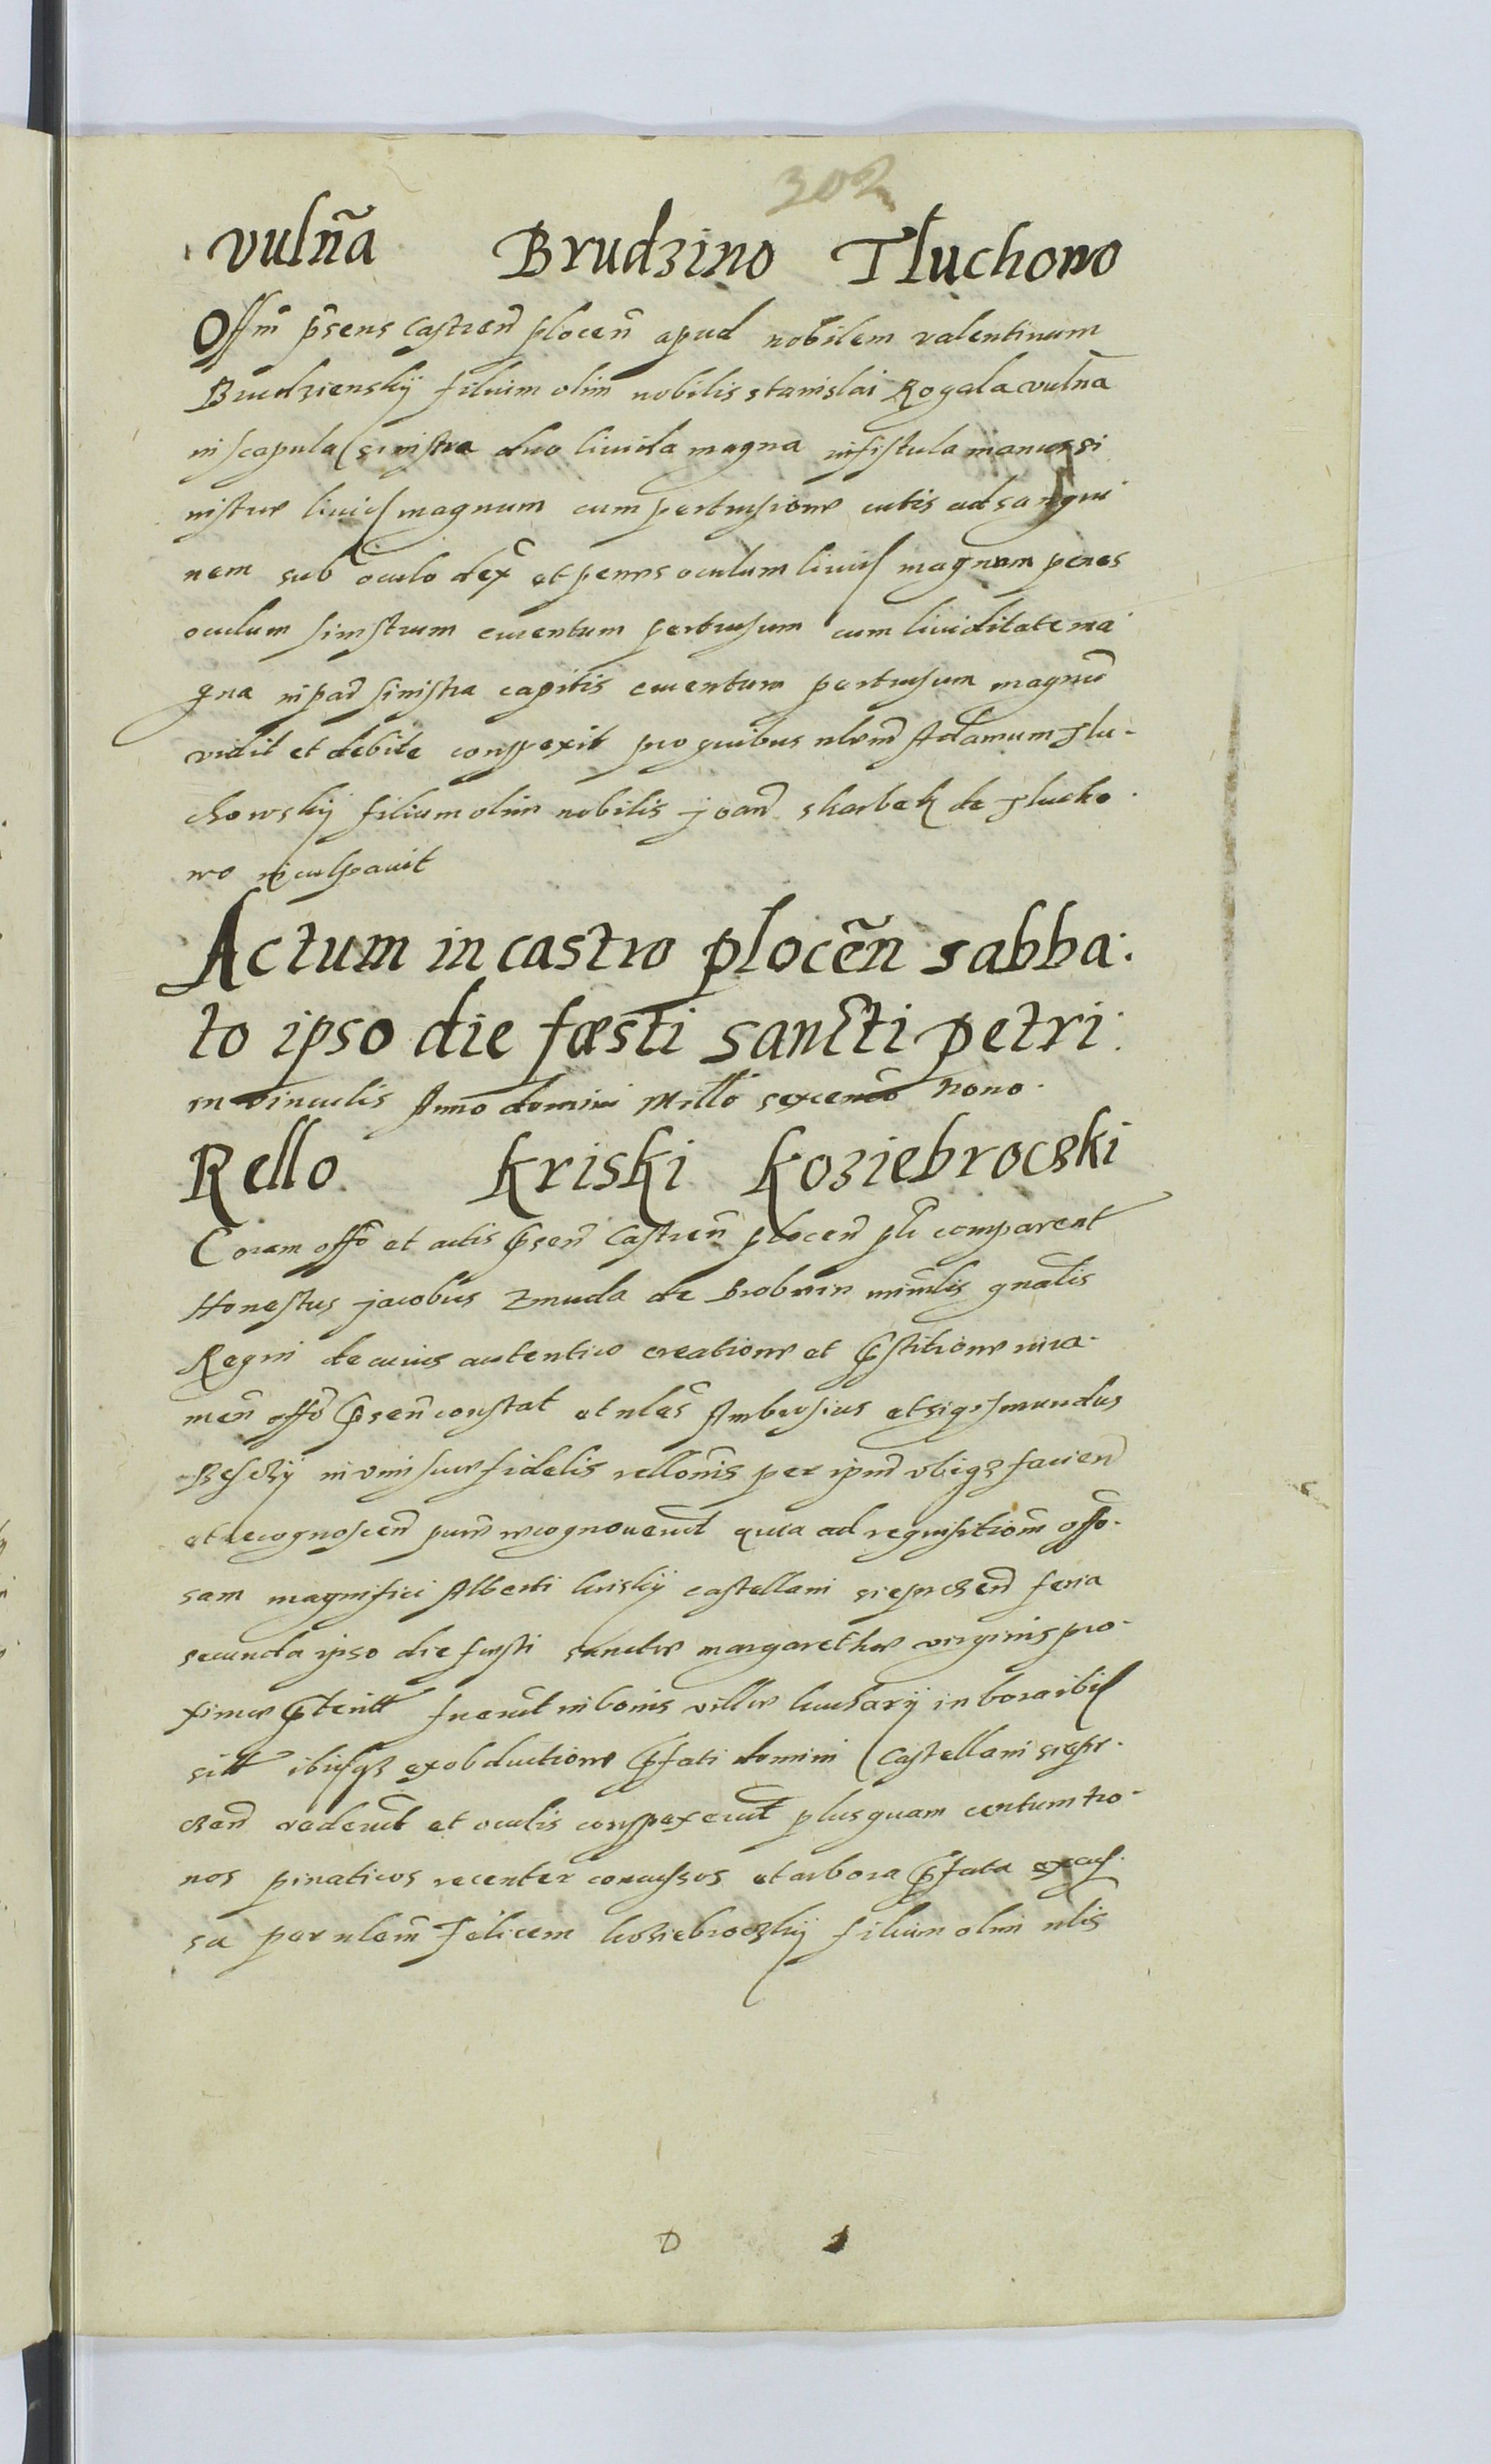 302
vulña Brudzino Tluchowo
Offm̃ p̃sens Castreñ ploceñ apud nobilem valentinum
Brudzienskÿ filium olim nobilis stanislai Rogala vulña
in scapula sinistra duo livida magna in fistula manus si
nistræ livid magnum cum pertusione cutis ad sangui
nem sub oculo dex̃ et penes oculum livid magnum penes
oculum sinistrum cruentum pertusum cum lividitate ma
gna in par̃ sinistra capitis cruentum pertusum magnũ
vidit et debite conspexit pro quibus nlem̃ Adamum Tlu-
chowskÿ filium olim nobilis joañ skarbek de Tlucho
wo inculpavit
Actum in castro ploceñ sabba:
to ipso die fæsti sancti petri
in vinculis Anno domini Millo sexcenᵗo Nono
Rello Kriski Koziebroczki
Coram offo et actis p̃señ Castreñ ploceñ pli comparent
Honestus jacobus Zmuda de Brobnin minlis gnalis
Regni de cuius autentico creatione et p̃stitione iura-
meñ offo p̃señ constat et nles Ambrosius et sigismundus
in vim suæ fidelis rellonis per ipm̃ ubiqz facieñ
et recognosceñ pure recognoverũt quia ad requisitionem̃ offo-
sam magnifici Alberti kriskÿ castellani sierpczeñ feria
secunda ipso die fæsti sanctæ margarethæ virginis pro-
ximæ p̃teritt fuerũt in bonis villæ kucharÿ in bora ibid
sitt ibidqz ex obductione p̃fati domini Castellani sierp-
czeñ viderũt et oculis conspexerũt plus quam centum tro-
nos pinaticos recenter concussos et arbora p̃fata excus
sa per nlem̃ Felicem koziebroczkÿ filium olim nlis